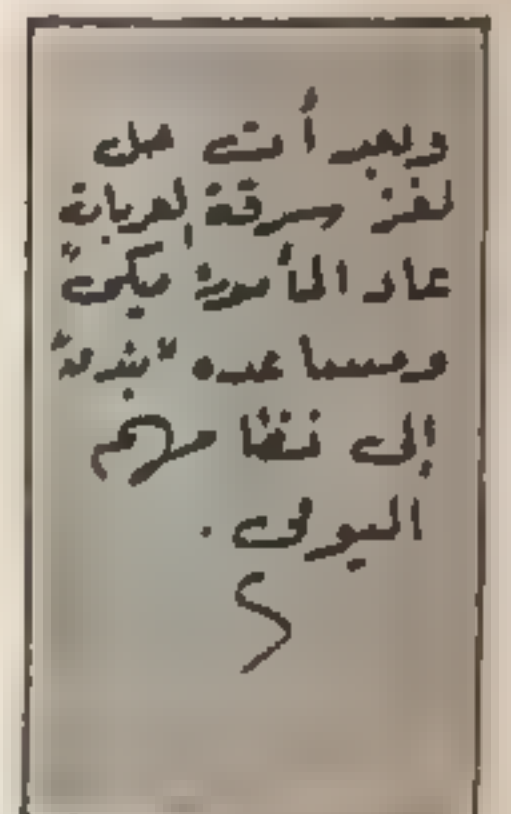 وبعد أن حل
لغز سرقة العربات
عاد المأمور "بيكى"
ومساعده "بندق"
إلى نظامهم
اليومى .